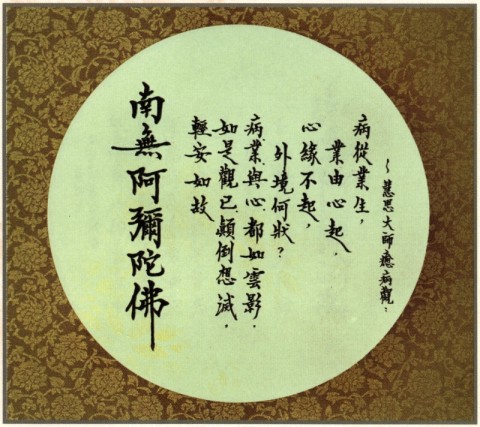 ～慧思大師癒病觀：
病從業生，
業由心起，
心緣不起，
外境何狀？
病業與心都如雲影．
如是觀已顛倒想滅．
輕安如故
南無阿彌陀佛